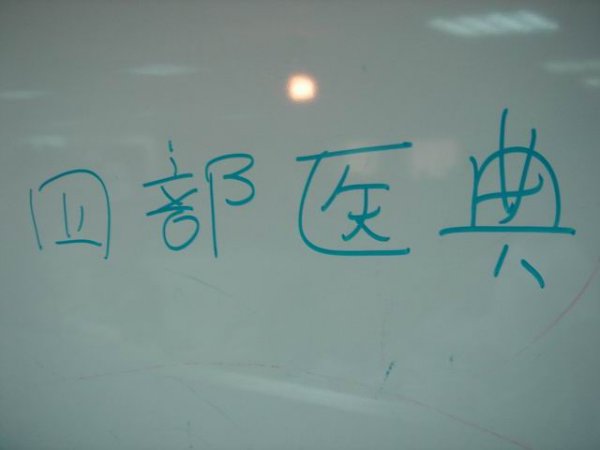 四部医典